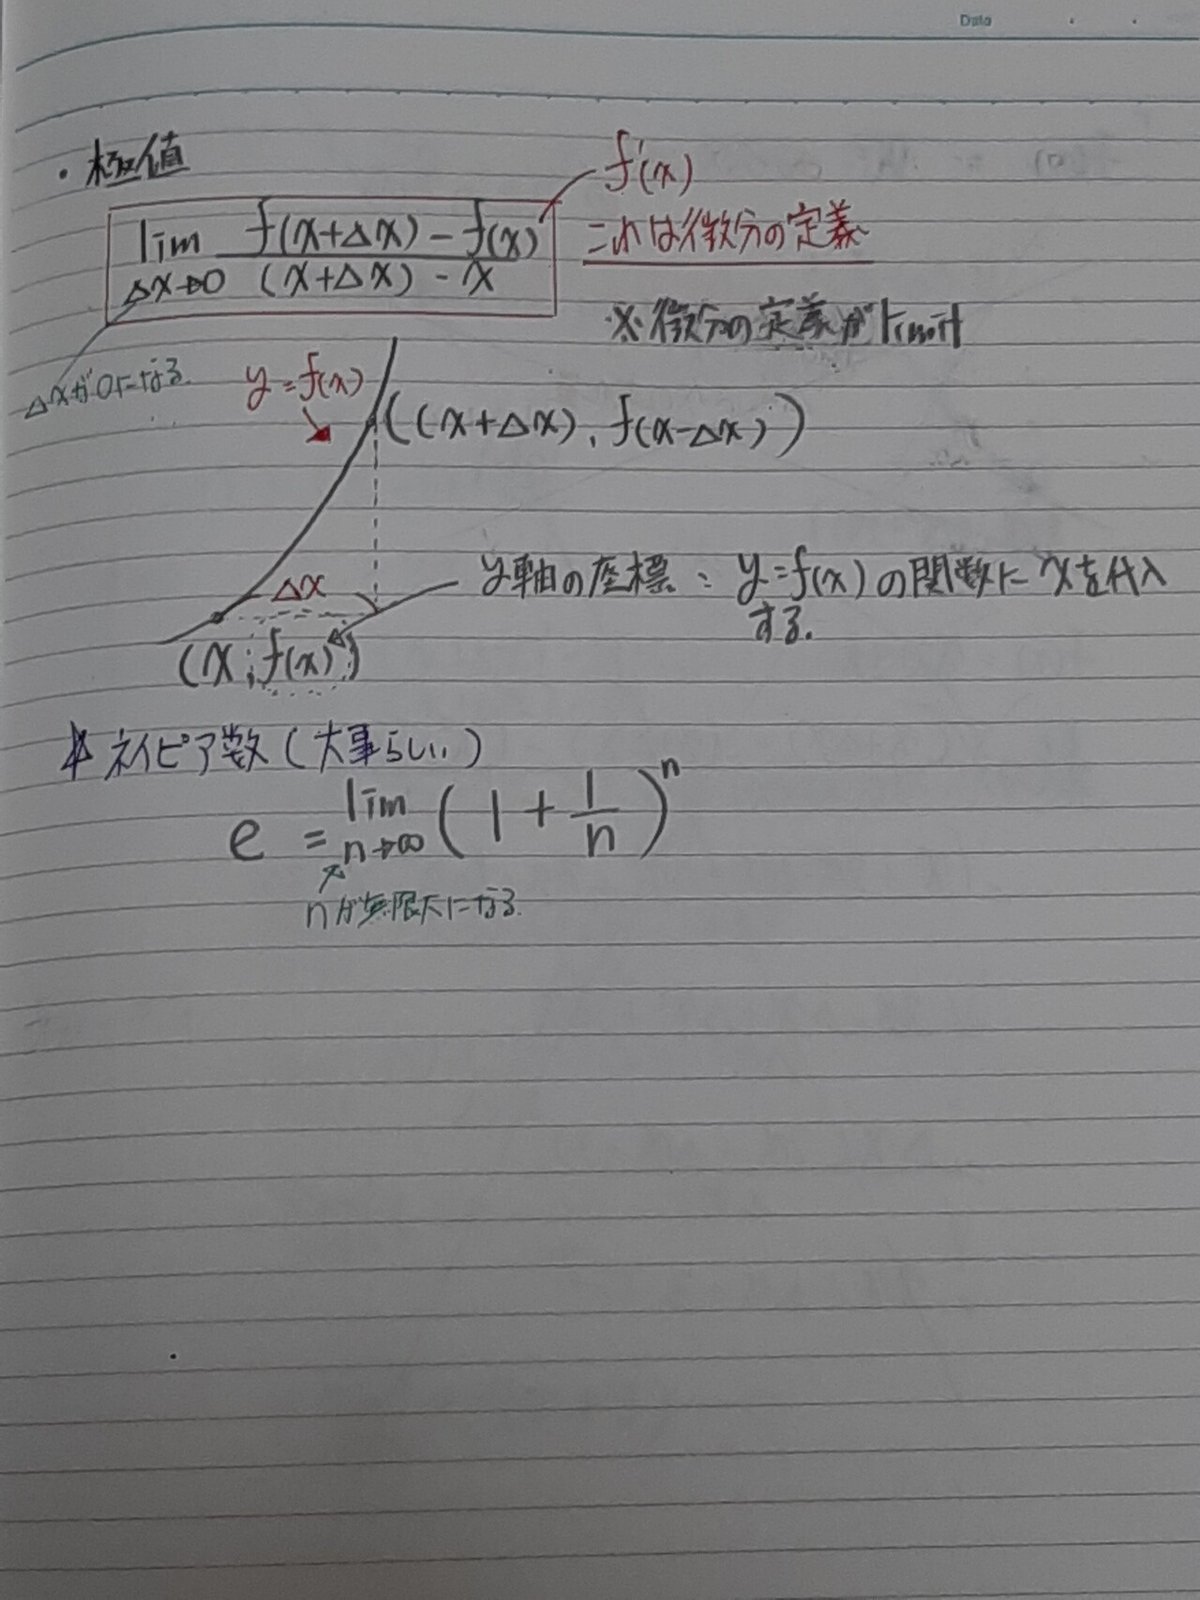 Data
・極値
lim f(x+Δx)-f(x)
Δx→0 (x+Δx)-x
f'(x)
これは微分の定義
※微分の定義がlimit
Δxが0になる.
y=f(x)
((x+Δx), f(x-Δx))
Δx
y軸の座標: y=f(x)の関数にxを代入
する.
(x, f(x))
ネイピア数(大事らしい)
e = lim (1+1/n)^n
n→∞
nが無限大になる.